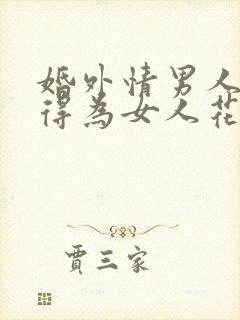 婚外情男人
得为女人花
贾三家